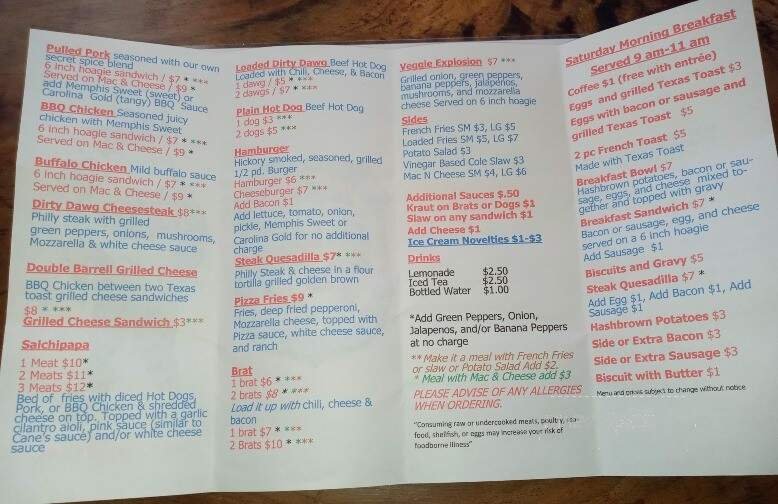 Pulled Pork seasoned with our own
secret spice blend
6 inch hoagie sandwich / $7 * ***
Served on Mac & Cheese / $9 *
add Memphis Sweet (sweet) or
Carolina Gold (tangy) BBQ Sauce
BBQ Chicken Seasoned juicy
chicken with Memphis Sweet
6 inch hoagie sandwich / $7 * ***
Served on Mac & Cheese / $9 *
Buffalo Chicken Mild buffalo sauce
6 inch hoagie sandwich / $7 * ***
Served on Mac & Cheese / $9 *
Dirty Dawg Cheesesteak $8***
Philly steak with grilled
green peppers, onions, mushrooms,
Mozzarella & white cheese sauce
Double Barrell Grilled Cheese
BBQ Chicken between two Texas
toast grilled cheese sandwiches
$8 * ***
Grilled Cheese Sandwich $3***
Salchipapa
1 Meat $10*
2 Meats $11*
3 Meats $12*
Bed of fries with diced Hot Dogs,
Pork, or BBQ Chicken & shredded
cheese on top. Topped with a garlic
cilantro aioli, pink sauce (similar to
Cane's sauce) and/or white cheese
sauce
Loaded Dirty Dawg Beef Hot Dog
Loaded with Chili, Cheese, & Bacon
1 dawg / $5 * ***
2 dawgs / $7 * ***
Plain Hot Dog Beef Hot Dog
1 dog $3 ***
2 dogs $5 ***
Hamburger
Hickory smoked, seasoned, grilled
1/2 pd. Burger
Hamburger $6 ***
Cheeseburger $7 ***
Add Bacon $1
Add lettuce, tomato, onion,
pickle, Memphis Sweet or
Carolina Gold for no additional
charge
Steak Quesadilla $7* ***
Philly Steak & cheese in a flour
tortilla grilled golden brown
Pizza Fries $9 *
Fries, deep fried pepperoni,
Mozzarella cheese, topped with
Pizza sauce, white cheese sauce,
and ranch
Brat
1 brat $6 * ***
2 brats $8 * ***
Load it up with chili, cheese &
bacon
1 brat $7 * ***
2 Brats $10 * ***
Veggie Explosion $7 ***
Grilled onion, green peppers,
banana peppers, jalapenos,
mushrooms, and mozzarella
cheese Served on 6 inch hoagie
Sides
French Fries SM $3, LG $5
Loaded Fries SM $5, LG $7
Potato Salad $3
Vinegar Based Cole Slaw $3
Mac N Cheese SM $4, LG $6
Additional Sauces $.50
Kraut on Brats or Dogs $1
Slaw on any sandwich $1
Add Cheese $1
Ice Cream Novelties $1-$3
Drinks
Lemonade $2.50
Iced Tea $2.50
Bottled Water $1.00
*Add Green Peppers, Onion,
Jalapenos, and/or Banana Peppers
at no charge
** Make it a meal with French Fries
or slaw or Potato Salad Add $2.
* Meal with Mac & Cheese add $3
PLEASE ADVISE OF ANY ALLERGIES
WHEN ORDERING.
"Consuming raw or undercooked meats, poultry, sea-
food, shellfish, or eggs may increase your risk of
foodborne illness"
Saturday Morning Breakfast
Served 9 am-11 am
Coffee $1 (free with entrée)
Eggs and grilled Texas Toast $3
Eggs with bacon or sausage and
grilled Texas Toast $5
2 pc French Toast $5
Made with Texas Toast
Breakfast Bowl $7
Hashbrown potatoes, bacon or sau-
sage, eggs, and cheese mixed to-
gether and topped with gravy
Breakfast Sandwich $7 *
Bacon or sausage, egg, and cheese
served on a 6 inch hoagie
Add Sausage $1
Biscuits and Gravy $5
Steak Quesadilla $7 *
Add Egg $1, Add Bacon $1, Add
Sausage $1
Hashbrown Potatoes $3
Side or Extra Bacon $3
Side or Extra Sausage $3
Biscuit with Butter $1
Menu and prices subject to change without notice